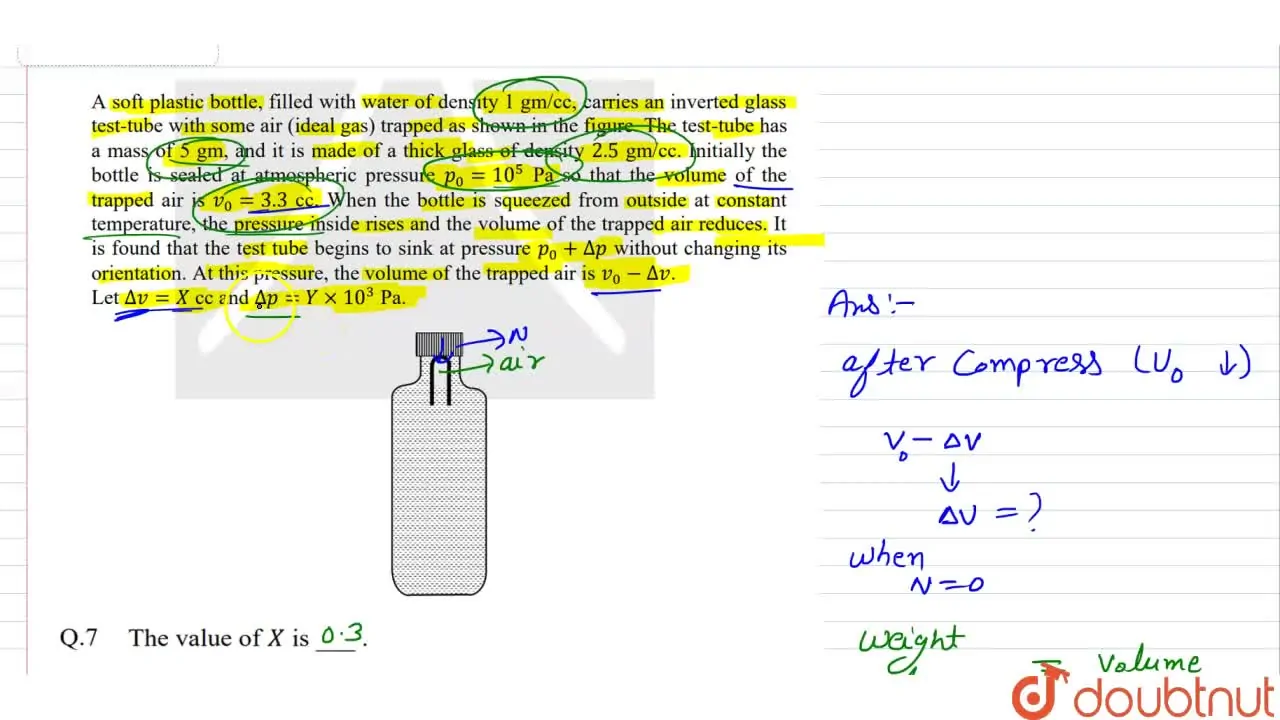 A soft plastic bottle, filled with water of density 1 gm/cc, carries an inverted glass
test-tube with some air (ideal gas) trapped as shown in the figure. The test-tube has
a mass of 5 gm, and it is made of a thick glass of density 2.5 gm/cc. Initially the
bottle is sealed at atmospheric pressure p₀ = 10⁵ Pa so that the volume of the
trapped air is v₀ = 3.3 cc. When the bottle is squeezed from outside at constant
temperature, the pressure inside rises and the volume of the trapped air reduces. It
is found that the test tube begins to sink at pressure p₀ + Δp without changing its
orientation. At this pressure, the volume of the trapped air is v₀ − Δv.
Let Δv = X cc and Δp = Y × 10³ Pa.
N
air
Q.7 The value of X is 0.3.
Ans :-
after Compress (V₀ ↓)
V₀ − ΔV
↓
ΔV = ?
when
N=0
weight
= volume
doubtnut